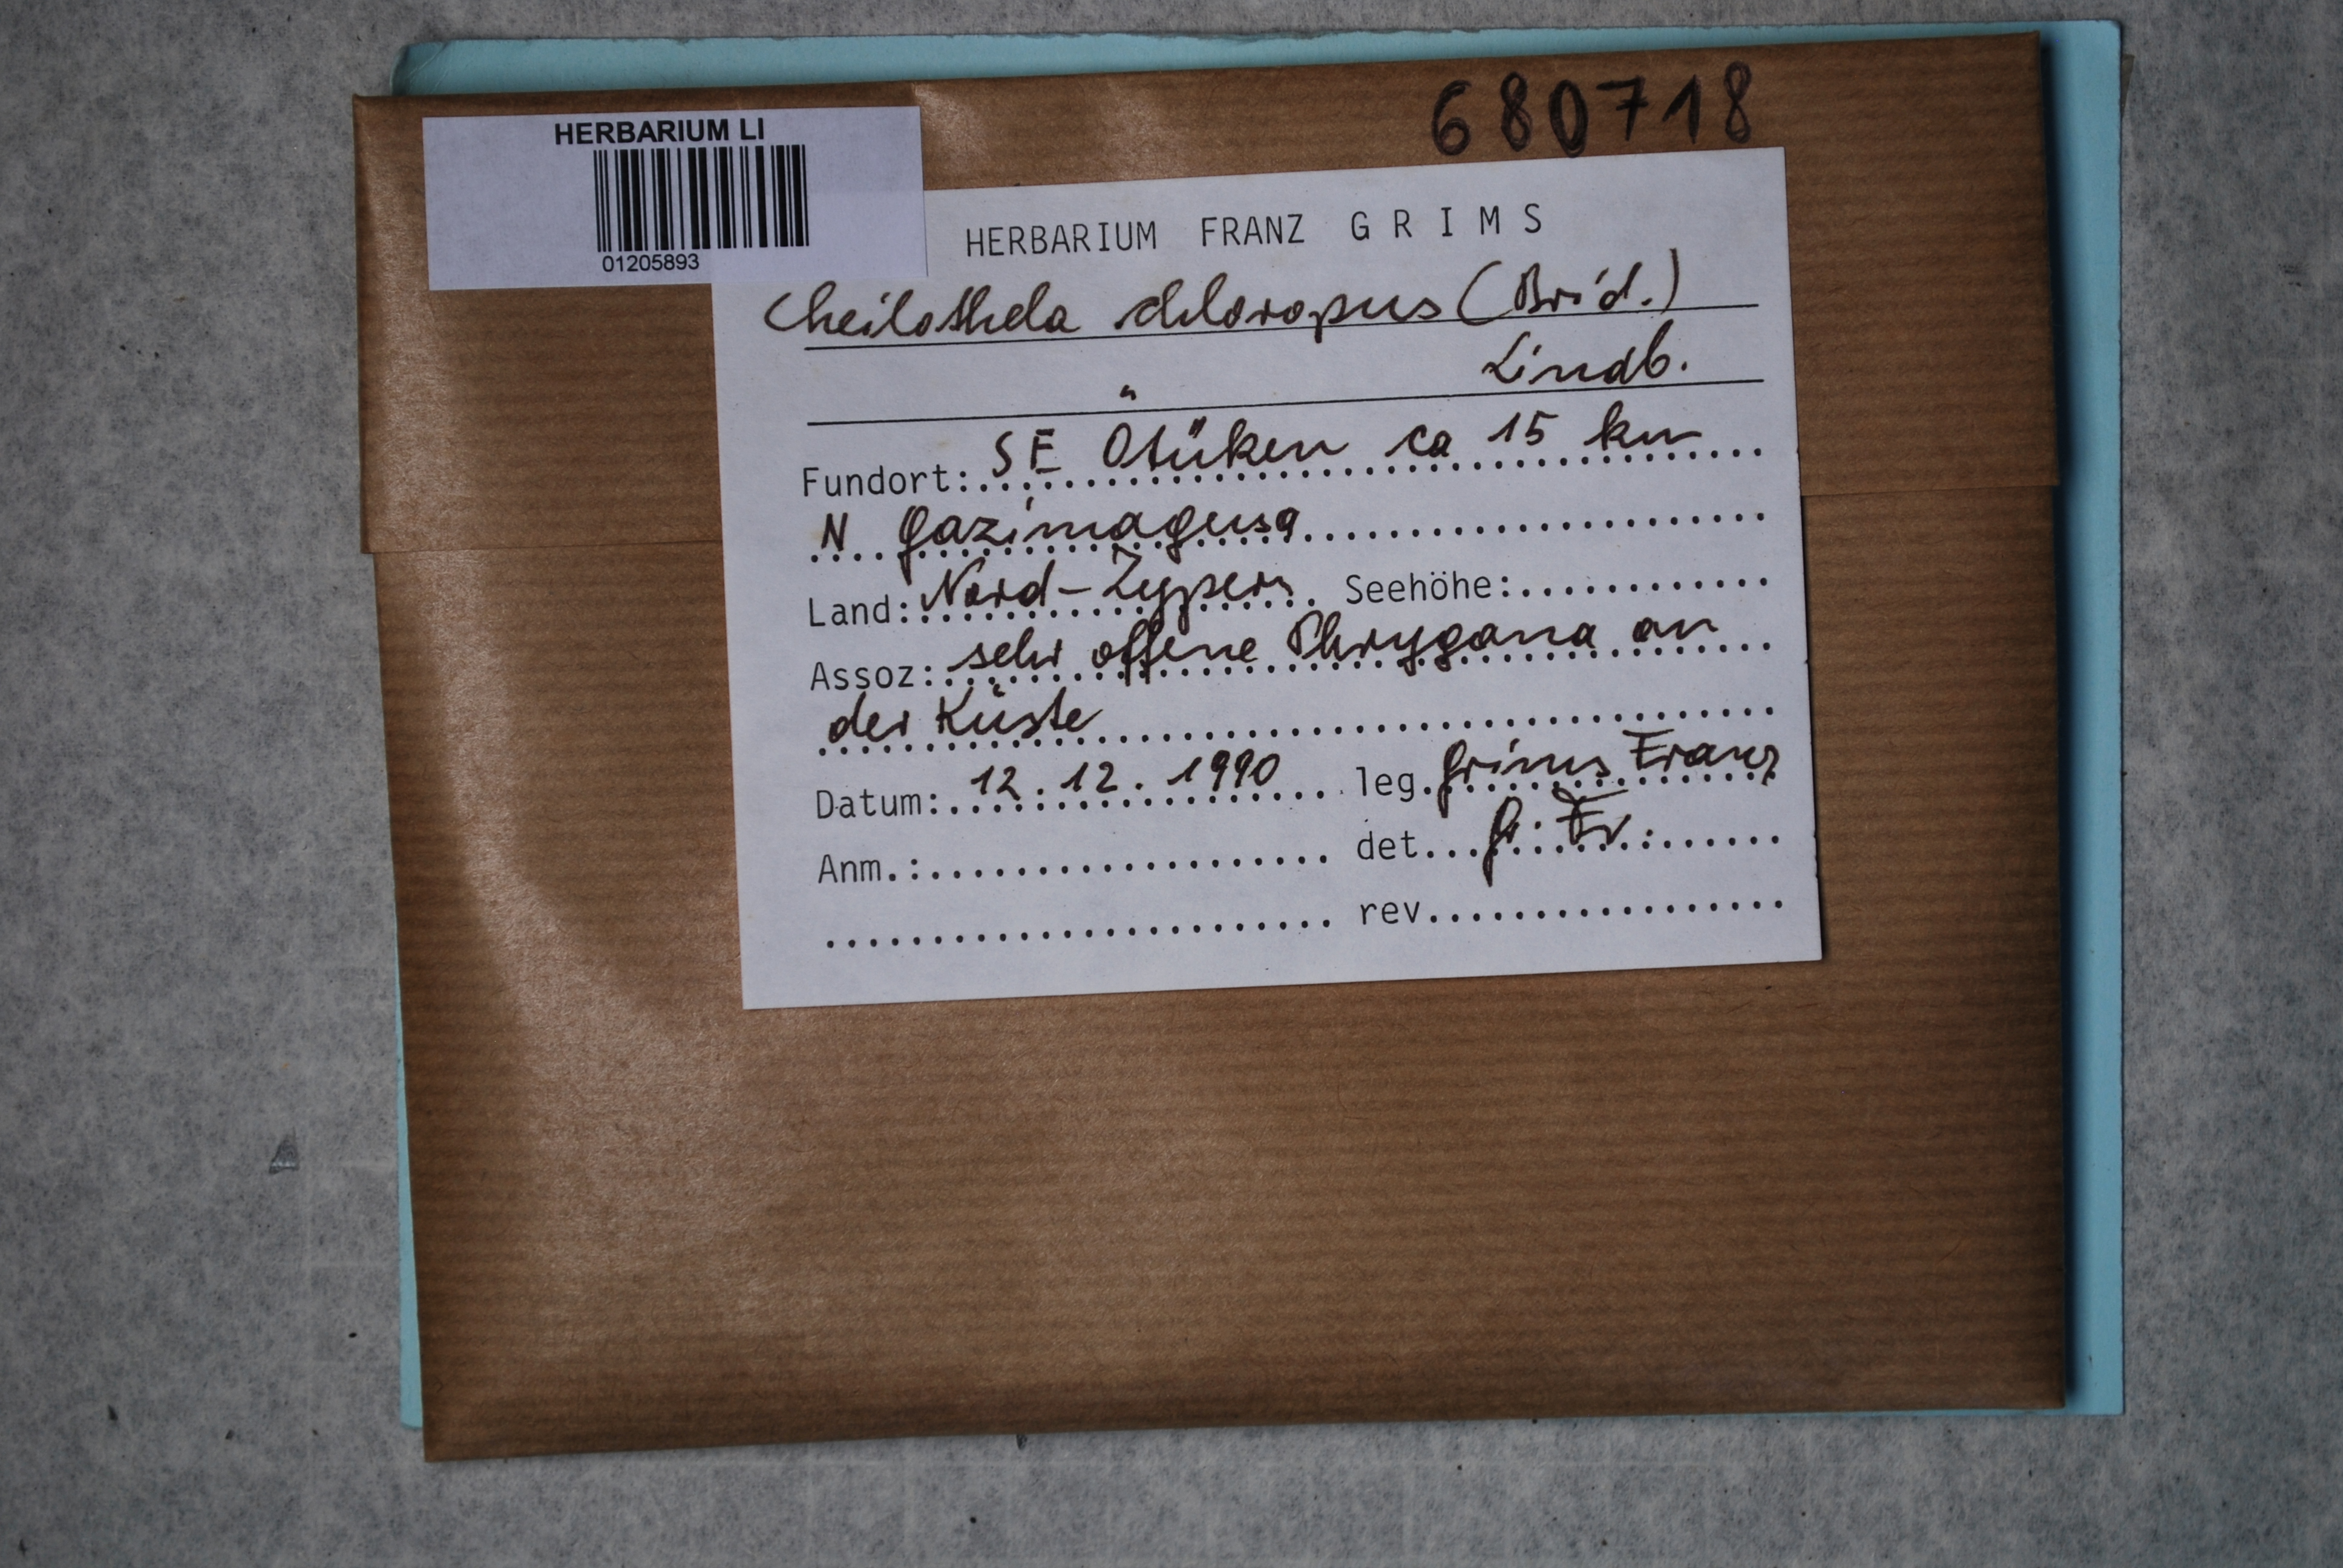 680718
HERBARIUM LI
01205893
HERBARIUM FRANZ GRIMS
Cheilothela chloropus (Brid.)
Lindb.
Fundort: SE Ötüken ca 15 km
N Gazimagusa
Land: Nord-Zypern Seehöhe:
Assoz: sehr offene Phrygana an
der Küste
Datum: 12.12.1990 leg. Grims Franz
Anm.: det. G. Fr.
rev.